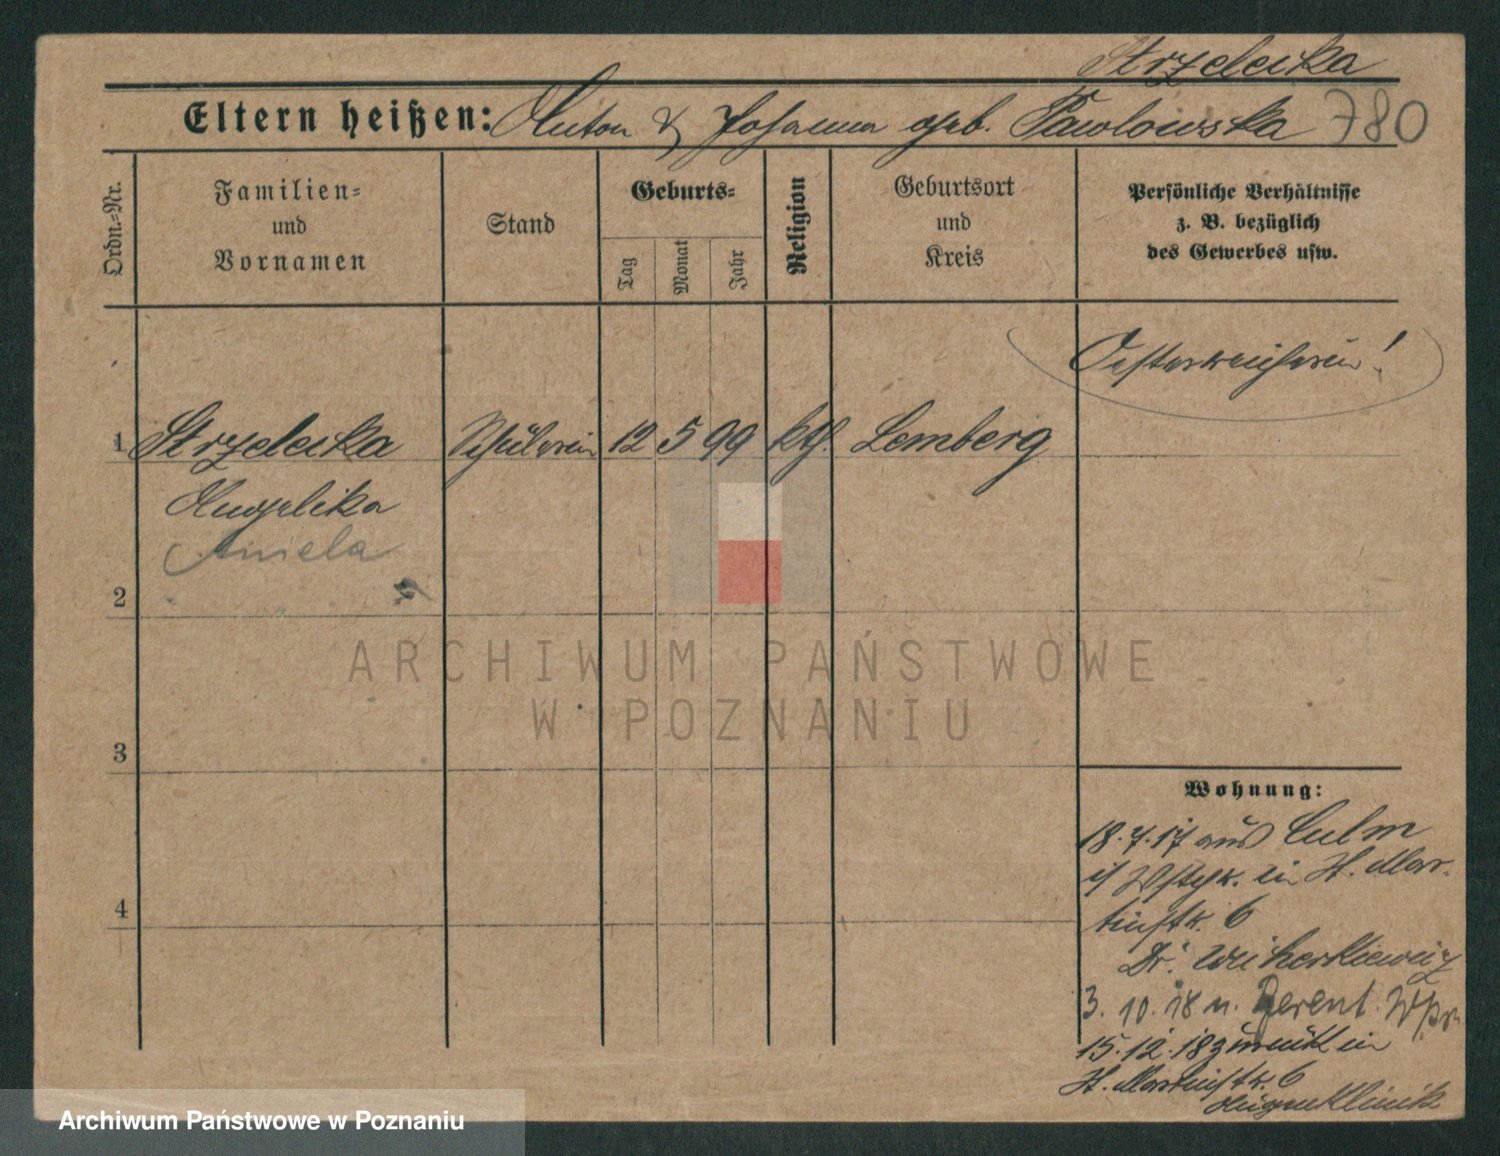 Strzelecka
Eltern heißen: Anton & Johanna geb. Pawlowska 780
Ordn.=Nr.
Familien=
und
Vornamen
Stand
Geburts=
Tag
Monat
Jahr
Religion
Geburtsort
und
Kreis
Persönliche Verhältnisse
z. B. bezüglich
des Gewerbes usw.
Oesterreicherin!
1 Strzelecka Schülerin 12 5 99 kth. Lemberg
Angelika
Aniela
2
3
4
Wohnung:
18.7.17 aus Culm
i/ Wstpr. in St. Mar-
tinstr. 6
Dr. Wicherkiewicz
3. 10. 18 n. Berent Wpr
15.12.18 zurück in
St. Martinstr. 6
Augenklinik
ARCHIWUM PAŃSTWOWE
W POZNANIU
Archiwum Państwowe w Poznaniu